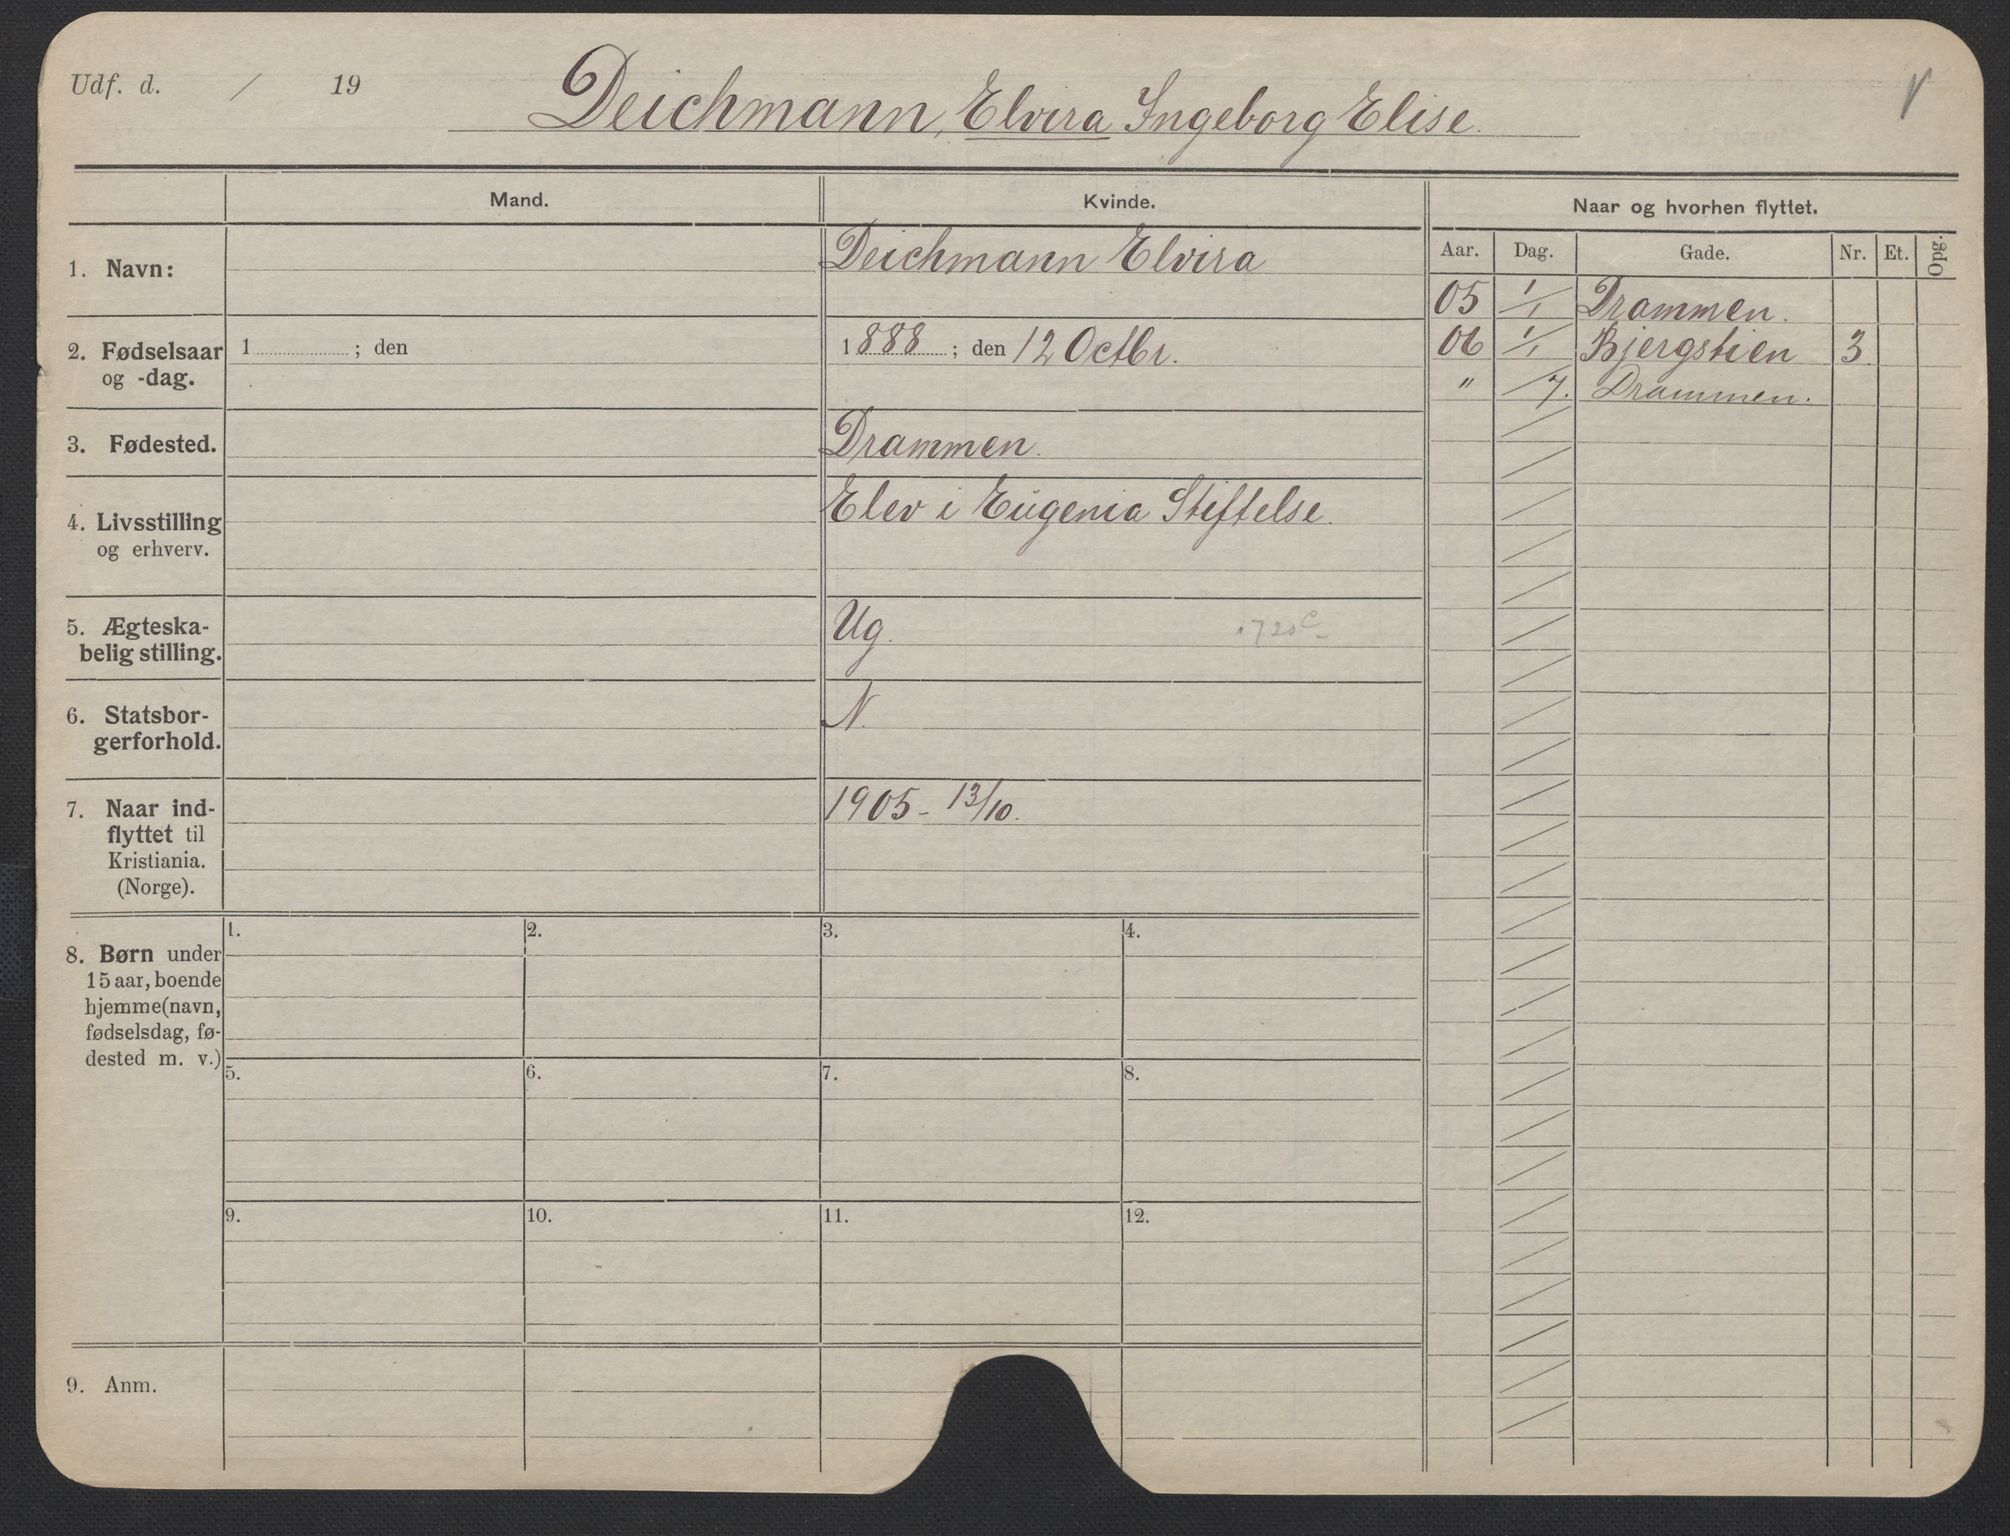 Udf. d. / 19
Deichmann, Elvira Ingeborg Elise.
Mand. Kvinde. Naar og hvorhen flyttet.
Aar. Dag. Gade. Nr. Et. Opg.
1. Navn: Deichmann Elvira
05 1/1 Drammen.
2. Fødselsaar 1 ; den 1888 ; den 12 Octbr.
og -dag.
06 1/1 Bjergstien 3
" /7. Drammen.
3. Fødested. Drammen.
4. Livsstilling Elev i Eugenia Stiftelse.
og erhverv.
5. Ægteska- Ug.
belig stilling.
6. Statsbor- N.
gerforhold.
7. Naar ind- 1905 - 13/10.
flyttet til
Kristiania.
(Norge).
8. Børn under
15 aar, boende
hjemme (navn,
fødselsdag, fø-
dested m. v.)
1. 2. 3. 4.
5. 6. 7. 8.
9. 10. 11. 12.
9. Anm.